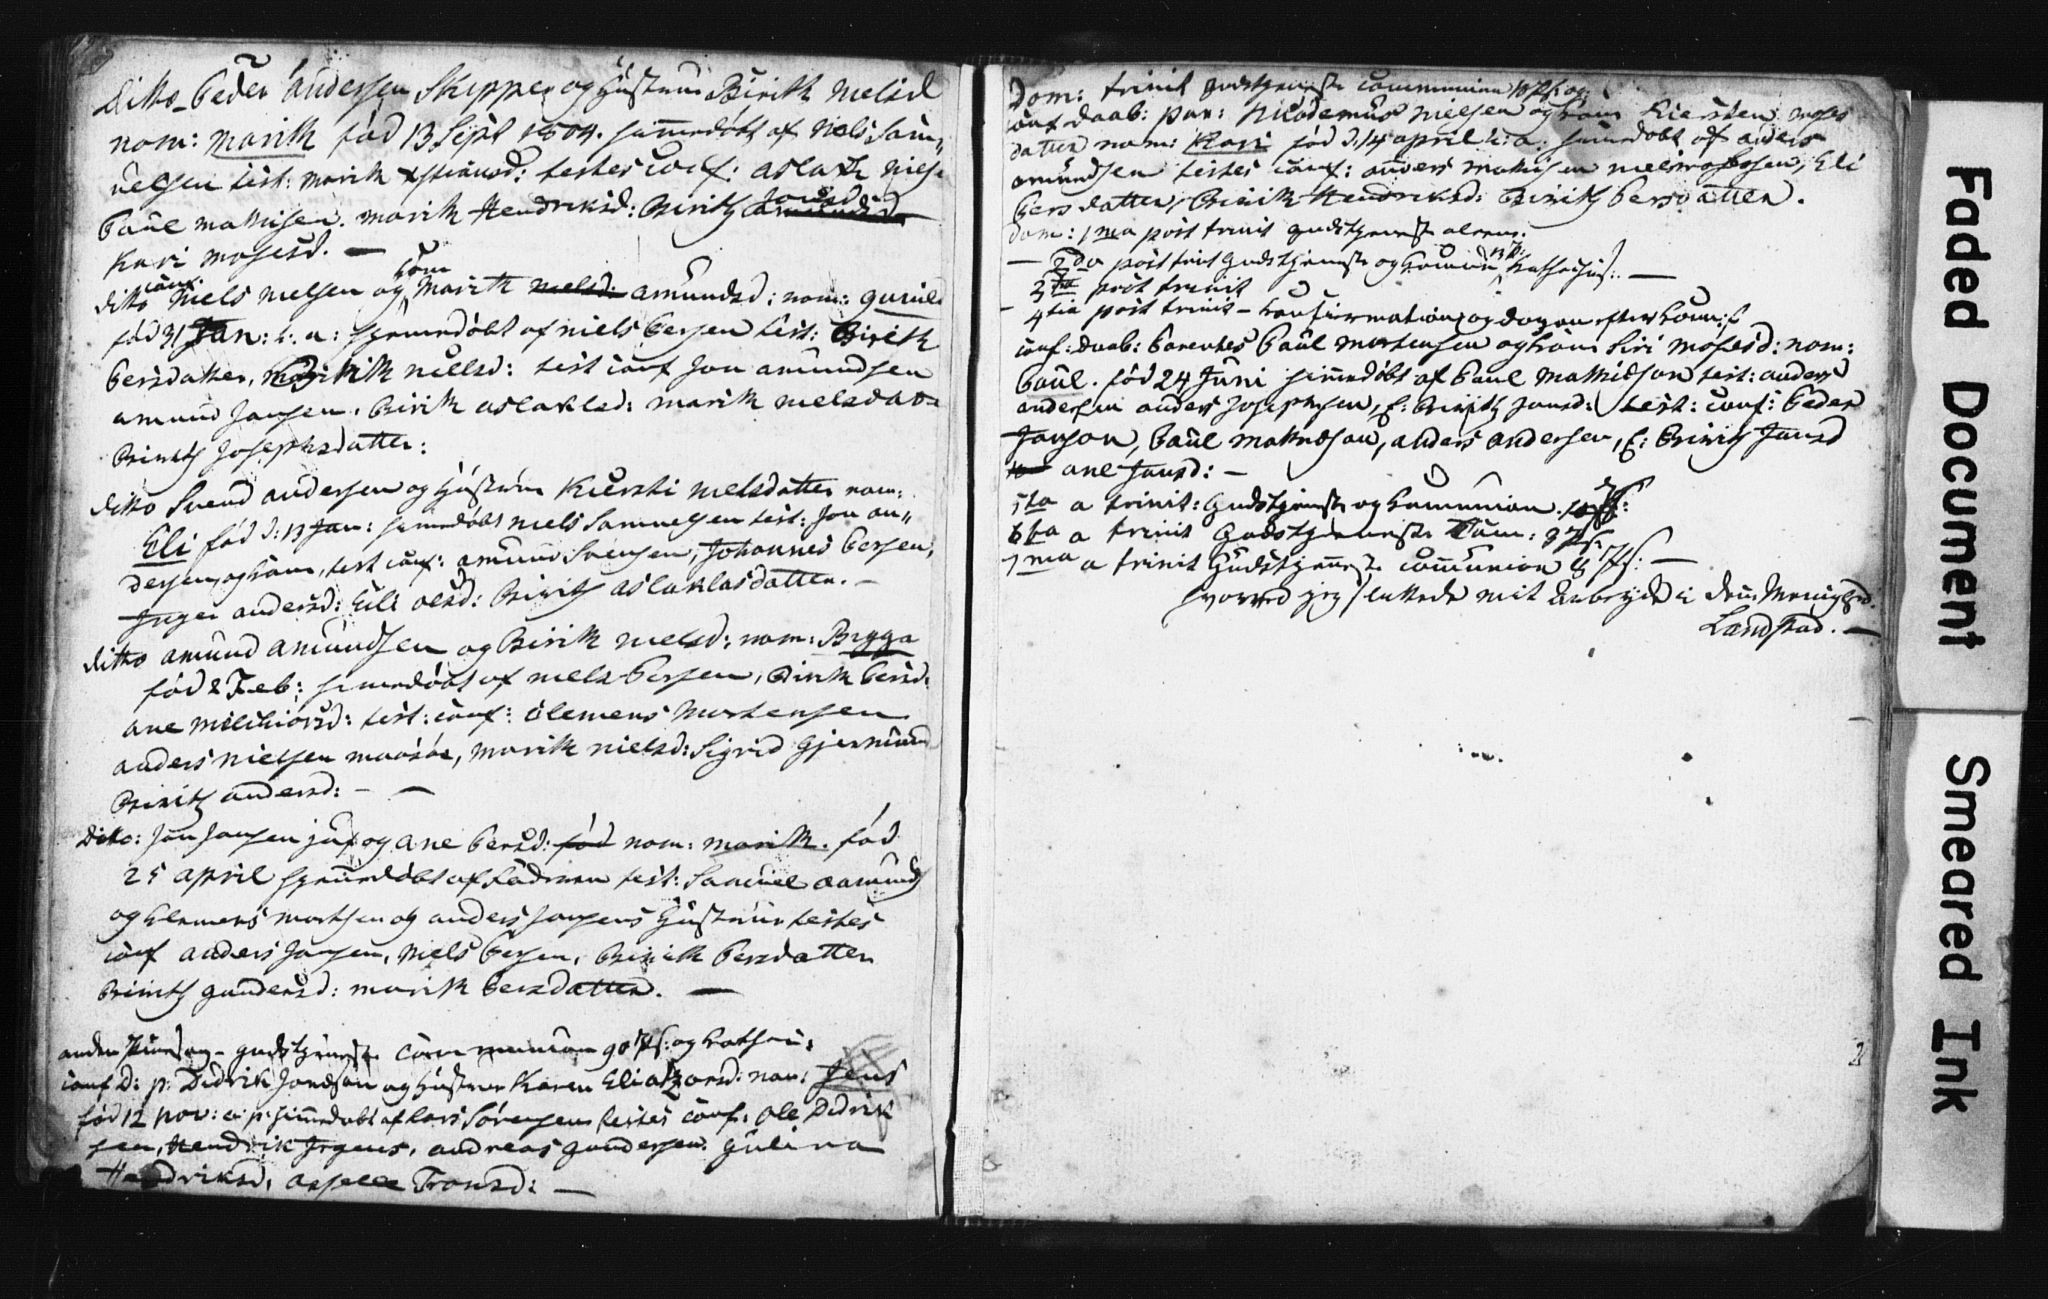 Ditto Peder Andersen Skipper og Hustrue Birith Nielsd
nom: Marith fød 13 Sept 1804. hjemmedøbt af Niels Sam„
uelsen test: Marith testes conf: Aslak Niels
Paul Mathisen. Marith Hendriksd: Birith Jonsd
Kari Mosesd. —
ditto Niels Nielsen og Kone Marith Amundsd: nom: Gunild
fød 31 Jan: h: a: hjemmedøbt af Niels Persen test: Birith
Persdatter, Birith Nielsd: test conf Jon Amundsen
Amund Jonsen. Birith Aslaksd: Marith Nielsdat
Birith Josephsdatter:
ditto Svend Andersen og Hustrue Kiersti Nielsdatter nom:
Eli fød d: 13 Jan: hjemmedøbt Niels Samuelsen test: Jon An„
dersen og kone, test conf: Amund Svensen, Johannes Persen,
Inger Andersd: Eli Olsd: Birith Aslaksdatter. —
ditto Amund Amundsen og Birith Nielsd: nom: Bigga
fød 2 Feb: hjemmedøbt af Niels Persen, Birith Persd:
Ane Melchiorsd: test: conf: Clemens Mortensen
Anders Nielsen, Marith Nielsd: Sigrid
Birith Andersd: — —
Ditto: Jon Jonsen og Ane Persd: fød nom: Marith. fød
25 April hjemmedøbt af Faderen test: Samuel Aamunds
og Clemens Mortsen og Anders Jonsens Hustrue testes
conf Anders Jonsen, Niels Persen, Birith Persdatter
Birith Gundersd: Marith Persdatter. —
anden Pintsedag – Gudstjeneste Communion 90 Ps: og
conf D: p: Didrik Jondson og Hustrue Karen Eliatzersd: nom: Jens
fød 12 Nov: a: p: hjemmedøbt af Lars Sørensen testes conf: Ole Didrik
sen, Hendrik Jrgens, Andreas Gundersen. Gulina
Hendriksd, Tronsd: —
Dom: trinit Gudstjeneste Communion og
conf Daab: par: Nicodemus Nielsen og kone Kiersten Moses
datter nom: Kari fød d: 14 April h: a: hjemmedøbt af Anders
Amundsen testes conf: Anders Mathisen, Eli
Persdatter, Birith Hendriksd: Birith Persdatter.
dom: 1ma post trinit Gudstjeneste alene.
— 2da post trinit Gudstjeneste og Comun —
3tia post trinit
— 4tia post trinit – Confirmation og dagen efter Comun:
conf: Daab: Parentes Paul Mortensen og kone Siri Mosesd: nom:
Paul. fød 24 Juni hjemmedøbt af Paul Mathisson test: Anders
Andersen Anders Josephsen, Birith Jonsd: test: conf: Peder
Jonson, Paul Mathisson, Anders Andersen, Birith Jonsd
Ane Jonsd: —
5ta a trinit: Gudstjeneste og Communion.
6ta a trinit Gudstjeneste Com: 8 Ps:
7ma a trinit Gudstjeneste Communion Ps: —
hvorved jeg sluttede mit Arbeyde i den Menighed.
Landstad. —
Faded Document
Smeared Ink